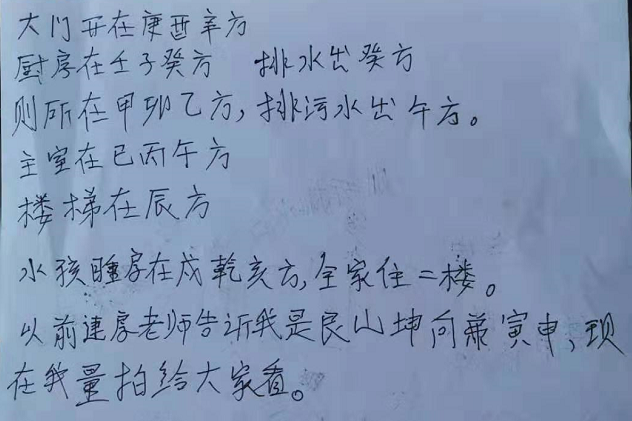 大门开在庚酉辛方
厨房在壬子癸方 排水出癸方
则所在甲卯乙方，排污水出午方。
主室在巳丙午方
楼梯在辰方
水孩睡房在戍乾亥方，全家住二楼。
以前建房老师告诉我是艮山坤向兼寅申，现
在我量拍给大家看。